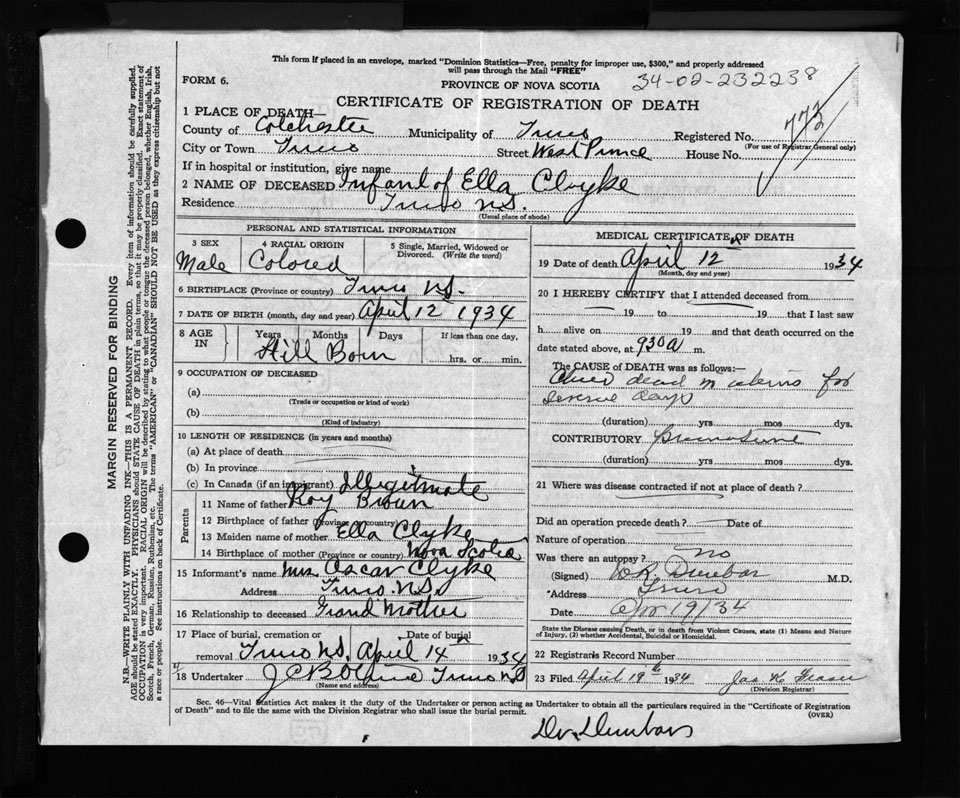 This form if placed in an envelope, marked "Dominion Statistics—Free, penalty for improper use, $300," and properly addressed
will pass through the Mail "FREE"
FORM 6.
PROVINCE OF NOVA SCOTIA
34-02-232238
CERTIFICATE OF REGISTRATION OF DEATH
1 PLACE OF DEATH—
County of Colchester Municipality of Truro Registered No. 773
(For use of Registrar General only)
City or Town Truro Street West Prince House No.
If in hospital or institution, give name
2 NAME OF DECEASED Infant of Ella Clyke
Residence Truro N.S.
(Usual place of abode)
PERSONAL AND STATISTICAL INFORMATION
3 SEX 4 RACIAL ORIGIN 5 Single, Married, Widowed or
Divorced. (Write the word)
Male Colored
6 BIRTHPLACE (Province or country) Truro N.S.
7 DATE OF BIRTH (month, day and year) April 12 1934
8 AGE IN Years Months Days If less than one day,
Still Born hrs. or min.
9 OCCUPATION OF DECEASED
(a)
(Trade or occupation or kind of work)
(b)
(Kind of industry)
10 LENGTH OF RESIDENCE (in years and months)
(a) At place of death
(b) In province
(c) In Canada (if an immigrant) Illegitimate
Parents
11 Name of father Roy Brown
12 Birthplace of father (Province or country)
13 Maiden name of mother Ella Clyke
14 Birthplace of mother (Province or country) Nova Scotia
15 Informant's name Mrs Oscar Clyke
Address Truro N.S.
16 Relationship to deceased Grand Mother
17 Place of burial, cremation or Date of burial
removal Truro N.S. April 14 1934
18 Undertaker J C B Truro N S
(Name and address)
MEDICAL CERTIFICATE OF DEATH
19 Date of death April 12th 1934
(Month, day and year)
20 I HEREBY CERTIFY that I attended deceased from
19 to 19 that I last saw
h alive on 19 and that death occurred on the
date stated above, at 930 a m.
The CAUSE of DEATH was as follows:—
dead for
days
(duration) yrs mos dys.
CONTRIBUTORY
(duration) yrs mos dys.
21 Where was disease contracted if not at place of death?
Did an operation precede death? Date of
Nature of operation
Was there an autopsy? No
(Signed) Dunbar M.D.
Address Truro
Date Apr 19/34
State the Disease causing Death, or in death from Violent Causes, state (1) Means and Nature
of Injury, (2) whether Accidental, Suicidal or Homicidal.
22 Registrars Record Number
23 Filed April 19th 1934 Jas K Fraser
(Division Registrar)
Sec. 46—Vital Statistics Act makes it the duty of the Undertaker or person acting as Undertaker to obtain all the particulars required in the "Certificate of Registration
of Death" and to file the same with the Division Registrar who shall issue the burial permit.
(OVER)
Dr. Dunbar
MARGIN RESERVED FOR BINDING
N.B.—WRITE PLAINLY WITH UNFADING INK—THIS IS A PERMANENT RECORD. Every item of information should be carefully supplied.
AGE should be stated EXACTLY. PHYSICIANS should STATE CAUSE OF DEATH in plain terms, so that it may be properly classified. Exact statement of
OCCUPATION is very important. RACIAL ORIGIN will be described by stating to what people or tongue the deceased person belonged, whether English, Irish,
Scotch, French, German, Russian, Ruthenian, etc. The terms "AMERICAN" or "CANADIAN" SHOULD NOT BE USED as they express citizenship but not
a race or people. See instructions on back of Certificate.